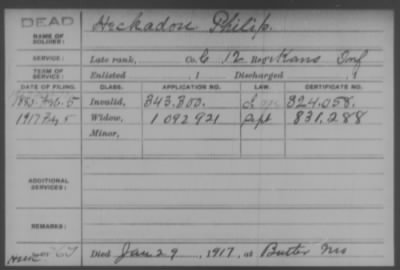 DEAD
Heckadon Philip.
NAME OF SOLDIER:
SERVICE: Late rank, Co. C 12 Reg't Kans Inf
TERM OF SERVICE: Enlisted , 1 Discharged , 1
DATE OF FILING. CLASS. APPLICATION NO. LAW. CERTIFICATE NO.
Feb. 5 Invalid, 343.300. 324.058.
1917 Feb 5 Widow, 1 092 921 Apt 831,288
Minor,
ADDITIONAL SERVICES:
REMARKS:
Died Jan 29, 1917, at Butler Mo